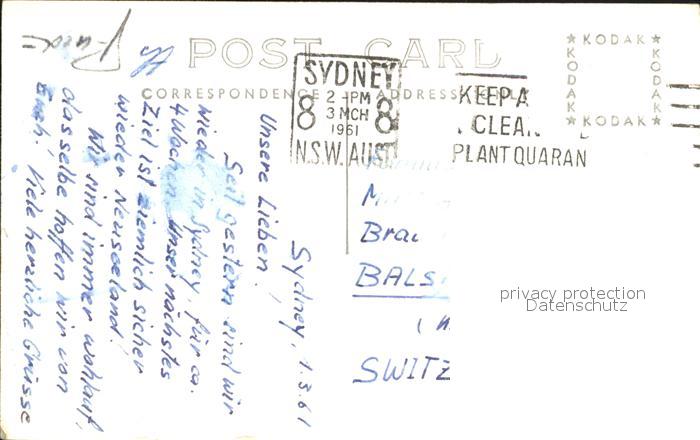 POST CARD
CORRESPONDENCE ADDRESS
KODAK
KODAK
KODAK
KODAK
SYDNEY
2-PM
3 MCH
1961
8 8
N.S.W. AUST
KEEP A
CLEA
PLANT QUARAN
Sydney, 1.3.61
Unsere Lieben,
Seit gestern sind wir
wieder in Sydney, für ca.
4 Wochen. Unser nächstes
Ziel ist ziemlich sicher
wieder Neuseeland!
Wir sind immer wohlauf,
dasselbe hoffen wir von
Euch! Viele herzliche Grüsse
Brau
BALS
SWITZ
privacy protection
Datenschutz